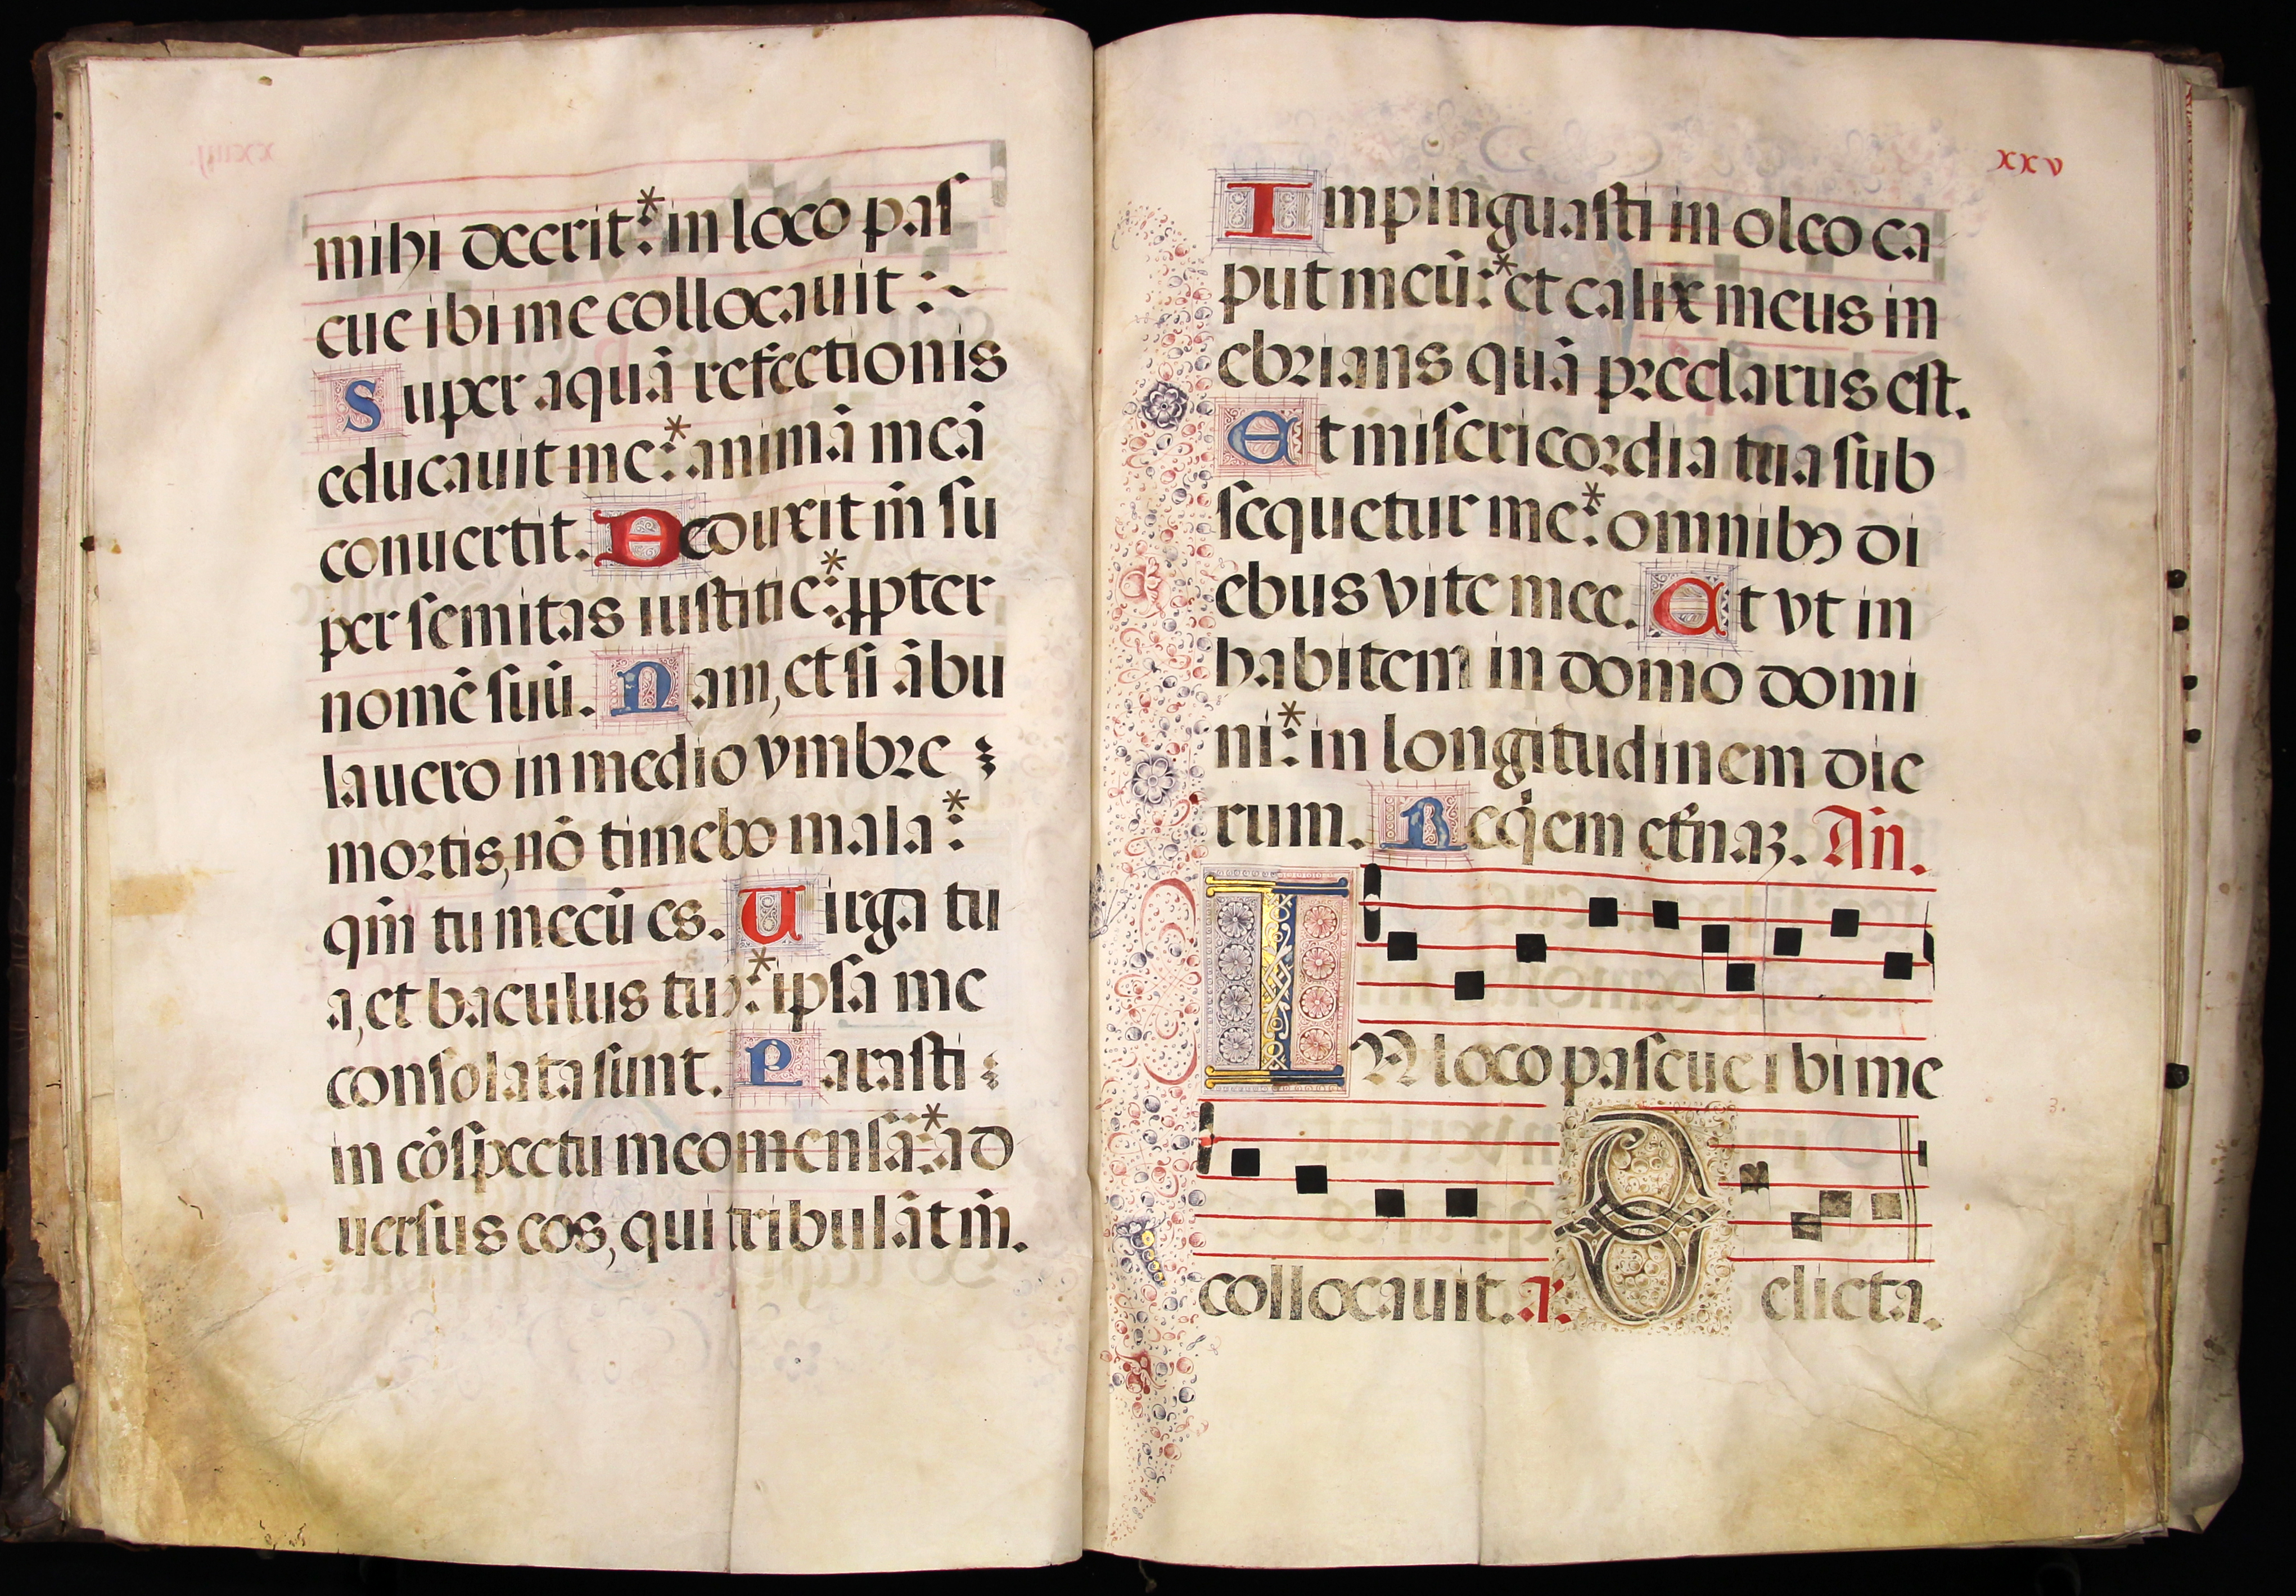 mihi deerit:* in loco pas
cue ibi me collocauit :~
Super aquā refectionis
educauit me:* animā meā
conuertit. Deduxit m̄ su
per semitas iustitie:* ꝓpter
nomē suū. Nam, et si ābu
lauero in medio vmbre
mortis, nō timebo mala:*
qm̄ tu mecū es. Uirga tu
a, et baculus tuꝰ:* ipsa me
consolata sunt. Parasti
in cōspectu meo mensā:* ad
uersus eos, qui tribulāt m̄.
xxv
Impinguasti in oleo ca
put meū:* et calix meus in
ebrians quā preclarus est.
Et misericordia tua sub
sequetur me:* omnibꝰ di
ebus vite mee. Et vt in
habitem in domo domi
ni:* in longitudinem die
rum. Reqͥem et̄naꝫ. An̄.
IN loco pascue ibi me
collocauit. a. Delicta.